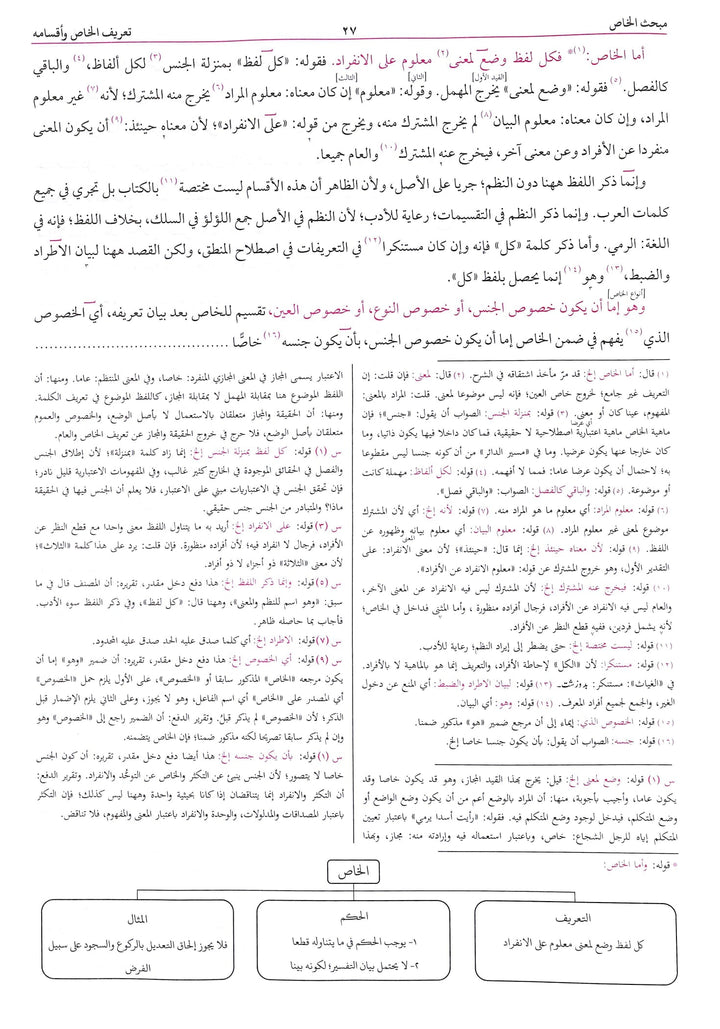 مبحث الخاص
٢٧
تعريف الخاص وأقسامه
أما الخاص:(١)* فكل لفظ وضع لمعنى(٢) معلوم على الانفراد. فقوله: «كل لفظ» بمنزلة الجنس(٣) لكل ألفاظ،(٤) والباقي
كالفصل.(٥) فقوله: «وضع لمعنى» يخرج المهمل. وقوله: «معلوم» إن كان معناه: معلوم المراد(٦) يخرج منه المشترك؛ لأنه(٧) غير معلوم
[القيد الأول] [الثاني] [الثالث]
المراد، وإن كان معناه: معلوم البيان(٨) لم يخرج المشترك منه، ويخرج من قوله: «على الانفراد»؛ لأن معناه حينئذ:(٩) أن يكون المعنى
منفردا عن الأفراد وعن معنى آخر، فيخرج عنه المشترك(١٠) والعام جميعا.
وإنما ذكر اللفظ ههنا دون النظم؛ جريا على الأصل، ولأن الظاهر أن هذه الأقسام ليست مختصة(١١) بالكتاب بل تجري في جميع
كلمات العرب. وإنما ذكر النظم في التقسيمات؛ رعاية للأدب؛ لأن النظم في الأصل جمع اللؤلؤ في السلك، بخلاف اللفظ؛ فإنه في
اللغة: الرمي. وأما ذكر كلمة «كل» فإنه وإن كان مستنكرا(١٢) في التعريفات في اصطلاح المنطق، ولكن القصد ههنا لبيان الاطراد
والضبط،(١٣) وهو(١٤) إنما يحصل بلفظ «كل».
[أنواع الخاص]
وهو إما أن يكون خصوص الجنس، أو خصوص النوع، أو خصوص العين، تقسيم للخاص بعد بيان تعريفه، أي الخصوص
الذي(١٥) يفهم في ضمن الخاص إما أن يكون خصوص الجنس، بأن يكون جنسه(١٦) خاصًّا ......................................
(١) قال: أما الخاص إلخ: قد مرّ مأخذ اشتقاقه في الشرح. (٢) قال: لمعنى: فإن قلت: إن
التعريف غير جامع؛ لخروج خاص العين؛ فإنه ليس موضوعا لمعنى. قلت: المراد بالمعنى:
المفهوم، عينا كان أو معنى. (٣) قوله: بمنزلة الجنس: الصواب أن يقول: «جنس»؛ فإن
أي عرضا
ماهية الخاص ماهية اعتبارية اصطلاحية لا حقيقية، فما كان داخلا فيها يكون ذاتيا، وما
كان خارجا عنها يكون عرضيا. وما في «مسير الدائر» من أن كونه جنسا ليس مقطوعا
به؛ لاحتمال أن يكون عرضا عاما: فمما لا أفهمه. (٤) قوله: لكل ألفاظ: مهملة كانت
أو موضوعة. (٥) قوله: والباقي كالفصل: الصواب: «والباقي فصل».
(٦) قوله: معلوم المراد: أي معلوم ما هو المراد منه. (٧) قوله: لأنه إلخ: أي لأن المشترك
موضوع لمعنى غير معلوم المراد. (٨) قوله: معلوم البيان: أي معلوم بيانه وظهوره عن
اللفظ. (٩) قوله: لأن معناه حينئذ إلخ: إنما قال: «حينئذ»؛ لأن معنى الانفراد: على
التقدير الأول، وهو خروج المشترك عن قوله: «معلوم الانفراد عن الأفراد».
(١٠) قوله: فيخرج عنه المشترك إلخ: لأن المشترك ليس فيه الانفراد عن المعنى الآخر،
والعام ليس فيه الانفراد عن الأفراد، فرجال أفراده منظورة ، وأما المثنى فداخل في الخاص؛
لأنه يشمل فردين، ففيه قطع النظر عن الأفراد.
(١١) قوله: ليست مختصة إلخ: حتى يضطر إلى إيراد النظم؛ رعاية للأدب.
(١٢) قوله: مستنكرا: لأن «الكل» لإحاطة الأفراد، والتعريف إنما هو بالماهية لا بالأفراد.
في «الغياث»: مستنكر: . (١٣) قوله: لبيان الاطراد والضبط: أي المنع عن دخول
الغير، والجمع لجميع أفراد المعرف. (١٤) قوله: وهو: أي البيان.
(١٥) قوله: الخصوص الذي: إيماء إلى أن مرجع ضمير «هو» مذكور ضمنا.
(١٦) قوله: جنسه: الصواب أن يقول: بأن يكون جنسا خاصا إلخ.
س (١) قوله: وضع لمعنى إلخ: قيل: يخرج بهذا القيد المجاز، وهو قد يكون خاصا وقد
يكون عاما، وأجيب بأجوبة، منها: أن المراد بالوضع أعم من أن يكون وضع الواضع أو
وضع المتكلم، فيدخل لوجود وضع المتكلم فيه. فقوله: «رأيت أسدا يرمي» باعتبار تعيين
المتكلم إياه للرجل الشجاع: خاص، وباعتبار استعماله فيه وإرادته منه: مجاز، وبهذا
* قوله: وأما الخاص:
الاعتبار يسمى المجاز في المعنى المجازي المنفرد: خاصا، وفي المعنى المنتظم: عاما. ومنها: أن
اللفظ الموضوع هنا بمقابلة المهمل لا بمقابلة المجاز، كاللفظ الموضوع في تعريف الكلمة.
ومنها: أن الحقيقة والمجاز متعلقان بالاستعمال لا بأصل الوضع، والخصوص والعموم
متعلقان بأصل الوضع، فلا حرج في خروج الحقيقة والمجاز عن تعريف الخاص والعام.
س (١) قوله: كل لفظ بمنزلة الجنس إلخ: إنما زاد كلمة «بمنزلة»؛ لأن إطلاق الجنس
والفصل في الحقائق الموجودة في الخارج كثير غالب، وفي المفهومات الاعتبارية قليل نادر؛
فإن تحقق الجنس في الاعتباريات مبني على الاعتبار، فلا يعلم أن الجنس فيها في الحقيقة
ماذا؟ والمتبادر من الجنس جنس حقيقي.
س (٣) قوله: على الانفراد إلخ: أريد به ما يتناول اللفظ معنى واحدا مع قطع النظر عن
الأفراد، فرجال لا انفراد فيه؛ لأن أفراده منظورة. فإن قلت: يرد على هذا كلمة «الثلاث»؛
لأن معنى «الثلاثة» ذو أجزاء لا ذو أفراد.
س (٥) قوله: وإنما ذكر اللفظ إلخ: هذا دفع دخل مقدر، تقريره: أن المصنف قال في ما
سبق: «وهو اسم للنظم والمعنى»، وههنا قال: «كل لفظ»، وفي ذكر اللفظ سوء الأدب.
فأجاب بما حاصله ظاهر.
س (٧) قوله: الاطراد إلخ: أي كلما صدق عليه الحد صدق عليه المحدود.
س (٩) قوله: أي الخصوص إلخ: هذا دفع دخل مقدر، تقريره: أن ضمير «وهو» إما أن
يكون مرجعه «الخاص» المذكور سابقا أو «الخصوص»، على الأول يلزم حمل «الخصوص»
أي المصدر على «الخاص» أي اسم الفاعل، وهو لا يجوز، وعلى الثاني يلزم الإضمار قبل
الذكر؛ لأن «الخصوص» لم يذكر قبلُ. وتقرير الدفع: أن الضمير راجع إلى «الخصوص» وهو
وإن لم يذكر سابقا تصريحا لكنه مذكور ضمنا؛ فإن الخاص يتضمنه.
س (١) قوله: بأن يكون جنسه إلخ: هذا أيضا دفع دخل مقدر، تقريره: أن كون الجنس
خاصا لا يتصور؛ لأن الجنس ينبئ عن التكثر والخاص عن التوحُّد والانفراد. وتقرير الدفع:
أن التكثر والانفراد إنما يتناقضان إذا كانا بحيثية واحدة وههنا ليس كذلك؛ فإن التكثر
باعتبار المصداقات والمدلولات، والوحدة والانفراد باعتبار المعنى والمفهوم، فلا تناقض.
الخاص
التعريف
كل لفظ وضع لمعنى معلوم على الانفراد
الحكم
١- يوجب الحكم في ما يتناوله قطعا
٢- لا يحتمل بيان التفسير؛ لكونه بينا
المثال
فلا يجوز إلحاق التعديل بالركوع والسجود على سبيل
الفرض